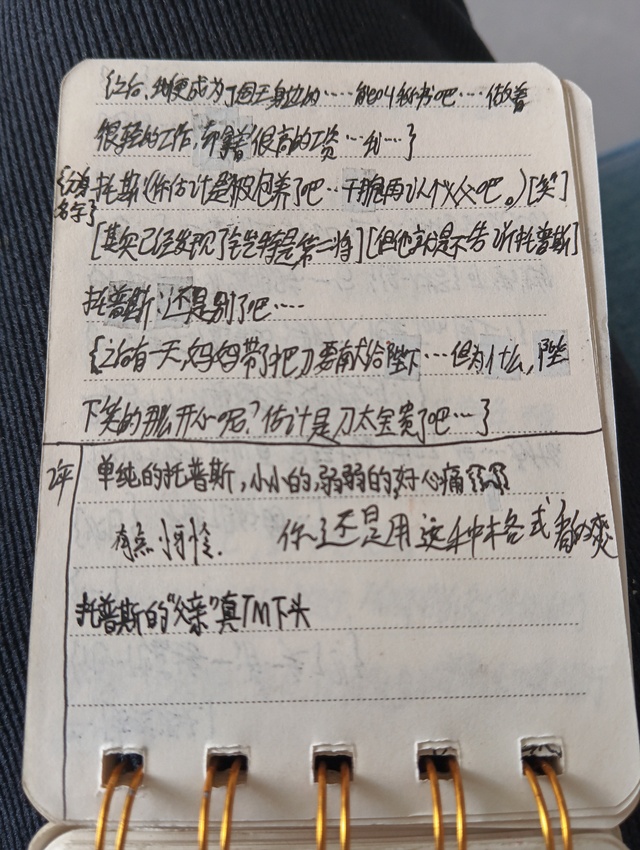 后，我便成为了国王身边的……能叫秘书吧…做着
很轻的工作，却拿着很高的工资…剑…}
托斯：(你估计是被包养了吧…干脆再认个义父吧。)[笑]
{分身名字}
[其实已经发现了 是第二将][但他就是不告诉托普斯]
托普斯：还是别了吧……
{之后有一天，妈妈带了把刀要献给陛下…但为什么，陛
下笑的那么开心呢？估计是刀太金贵了吧…}
评
单纯的托普斯，小小的，弱弱的，好心痛
有点可怜. 你还是用这种格式看的爽
托普斯的“父亲”真TM下头